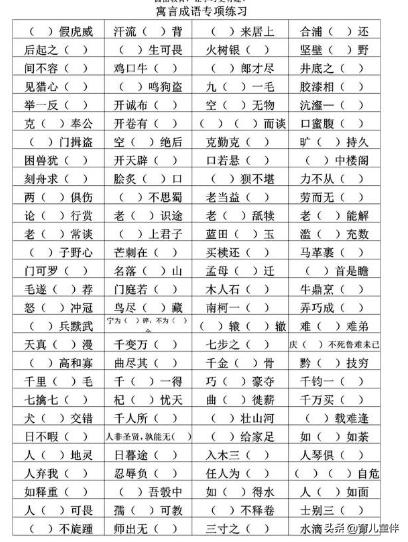 寓言成语专项练习
（ ）假虎威 汗流（ ）背 （ ）来居上 合浦（ ）还
后起之（ ） （ ）生可畏 火树银（ ） 坚壁（ ）野
间不容（ ） 鸡口牛（ ） （ ）郎才尽 井底之（ ）
见猎心（ ） （ ）鸣狗盗 九（ ）一毛 胶漆相（ ）
举一反（ ） 开诚布（ ） 空（ ）无物 沆瀣一（ ）
克（ ）奉公 开卷有（ ） （ ）（ ）而谈 口蜜腹（ ）
（ ）门揖盗 空（ ）绝后 克勤克（ ） 旷（ ）持久
困兽犹（ ） 开天辟（ ） 口若悬（ ） （ ）中楼阁
刻舟求（ ） 脍炙（ ）口 （ ）狈不堪 力不从（ ）
两（ ）俱伤 （ ）不思蜀 老当益（ ） 劳而无（ ）
论（ ）行赏 老（ ）识途 老（ ）舐犊 老（ ）能解
老（ ）常谈 （ ）上君子 蓝田（ ）玉 滥（ ）充数
（ ）子野心 芒刺在（ ） 买椟还（ ） 马革裹（ ）
门可罗（ ） 名落（ ）山 孟母（ ）迁 （ ）首是瞻
毛遂（ ）荐 门庭若（ ） 木人石（ ） 牛鼎烹（ ）
怒（ ）冲冠 鸟尽（ ）藏 南柯一（ ） 弄巧成（ ）
（ ）兵黩武 宁为（ ）碎，不为（ ）全 （ ）辕（ ）辙 难（ ）难弟
天真（ ）漫 千变万（ ） 七步之（ ） 庆（ ）不死鲁难未已
（ ）高和寡 曲尽其（ ） 千金（ ）骨 黔（ ）技穷
千里（ ）毛 千（ ）一得 巧（ ）豪夺 千钧一（ ）
七擒七（ ） 杞（ ）忧天 曲（ ）徙薪 千万买（ ）
犬（ ）交错 千人所（ ） （ ）壮山河 （ ）载难逢
日不暇（ ） 人非圣贤，孰能无（ ） （ ）给家足 如（ ）如荼
人（ ）地灵 日暮途（ ） 入木三（ ） 人琴俱（ ）
人弃我（ ） 忍辱负（ ） 任人为（ ） （ ）（ ）自危
如释重（ ） （ ）吾彀中 如（ ）得水 人（ ）如面
人（ ）可畏 孺（ ）可教 （ ）不释卷 士别三（ ）
（ ）不旋踵 师出无（ ） 三寸之（ ） 水滴
头条@育儿童伴